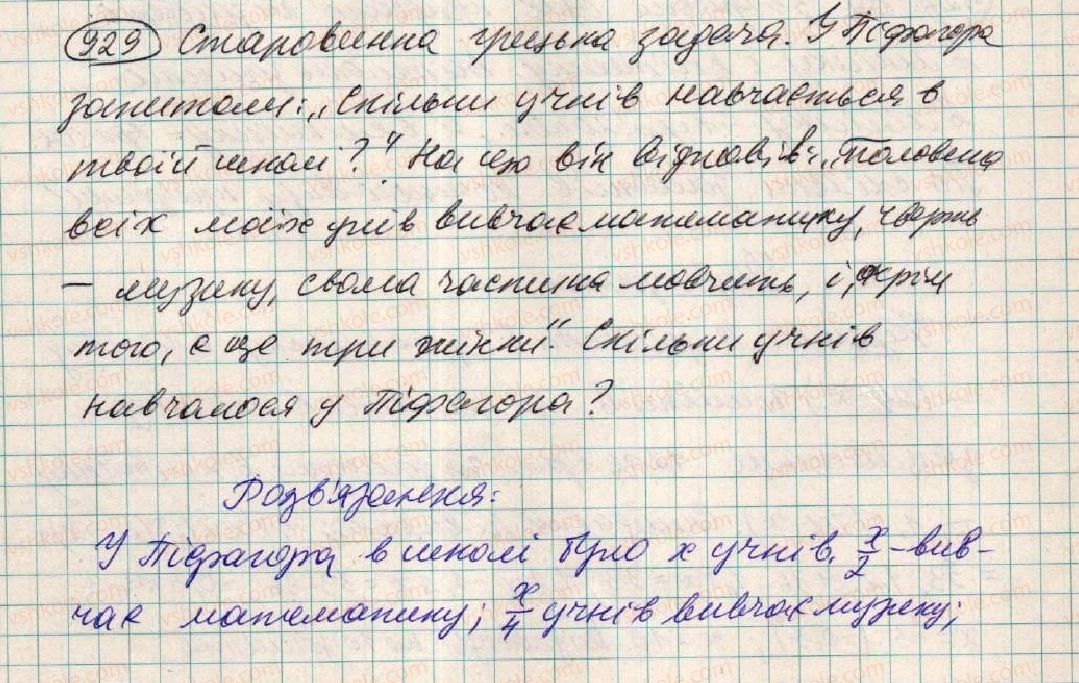 929 Старовинна грецька задача. У Піфагора
запитали: „Скільки учнів навчається в
твоїй школі?" На що він відповів: „Половина
всіх моїх учнів вивчає математику, чверть
— музику, сьома частина мовчить, і, окрім
того, є ще три жінки". Скільки учнів
навчалося у Піфагора?
Розв'язання:
У Піфагора в школі було x учнів. x/2 - вив-
чає математику; x/4 учнів вивчає музику;